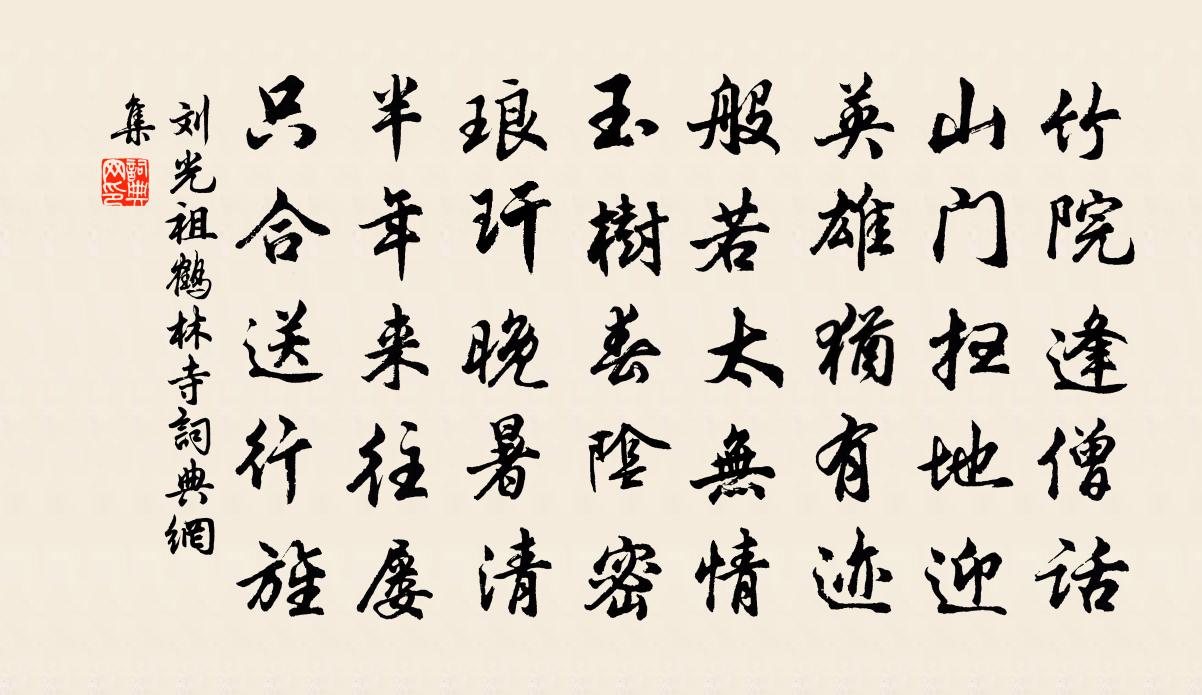 竹院逢僧话
山门扫地迎
英雄犹有迹
般若太無情
玉樹春陰密
琅玕晚暑清
半年来往屡
只合送行旌
刘光祖鶴林寺詞典網
集
詞典
网印